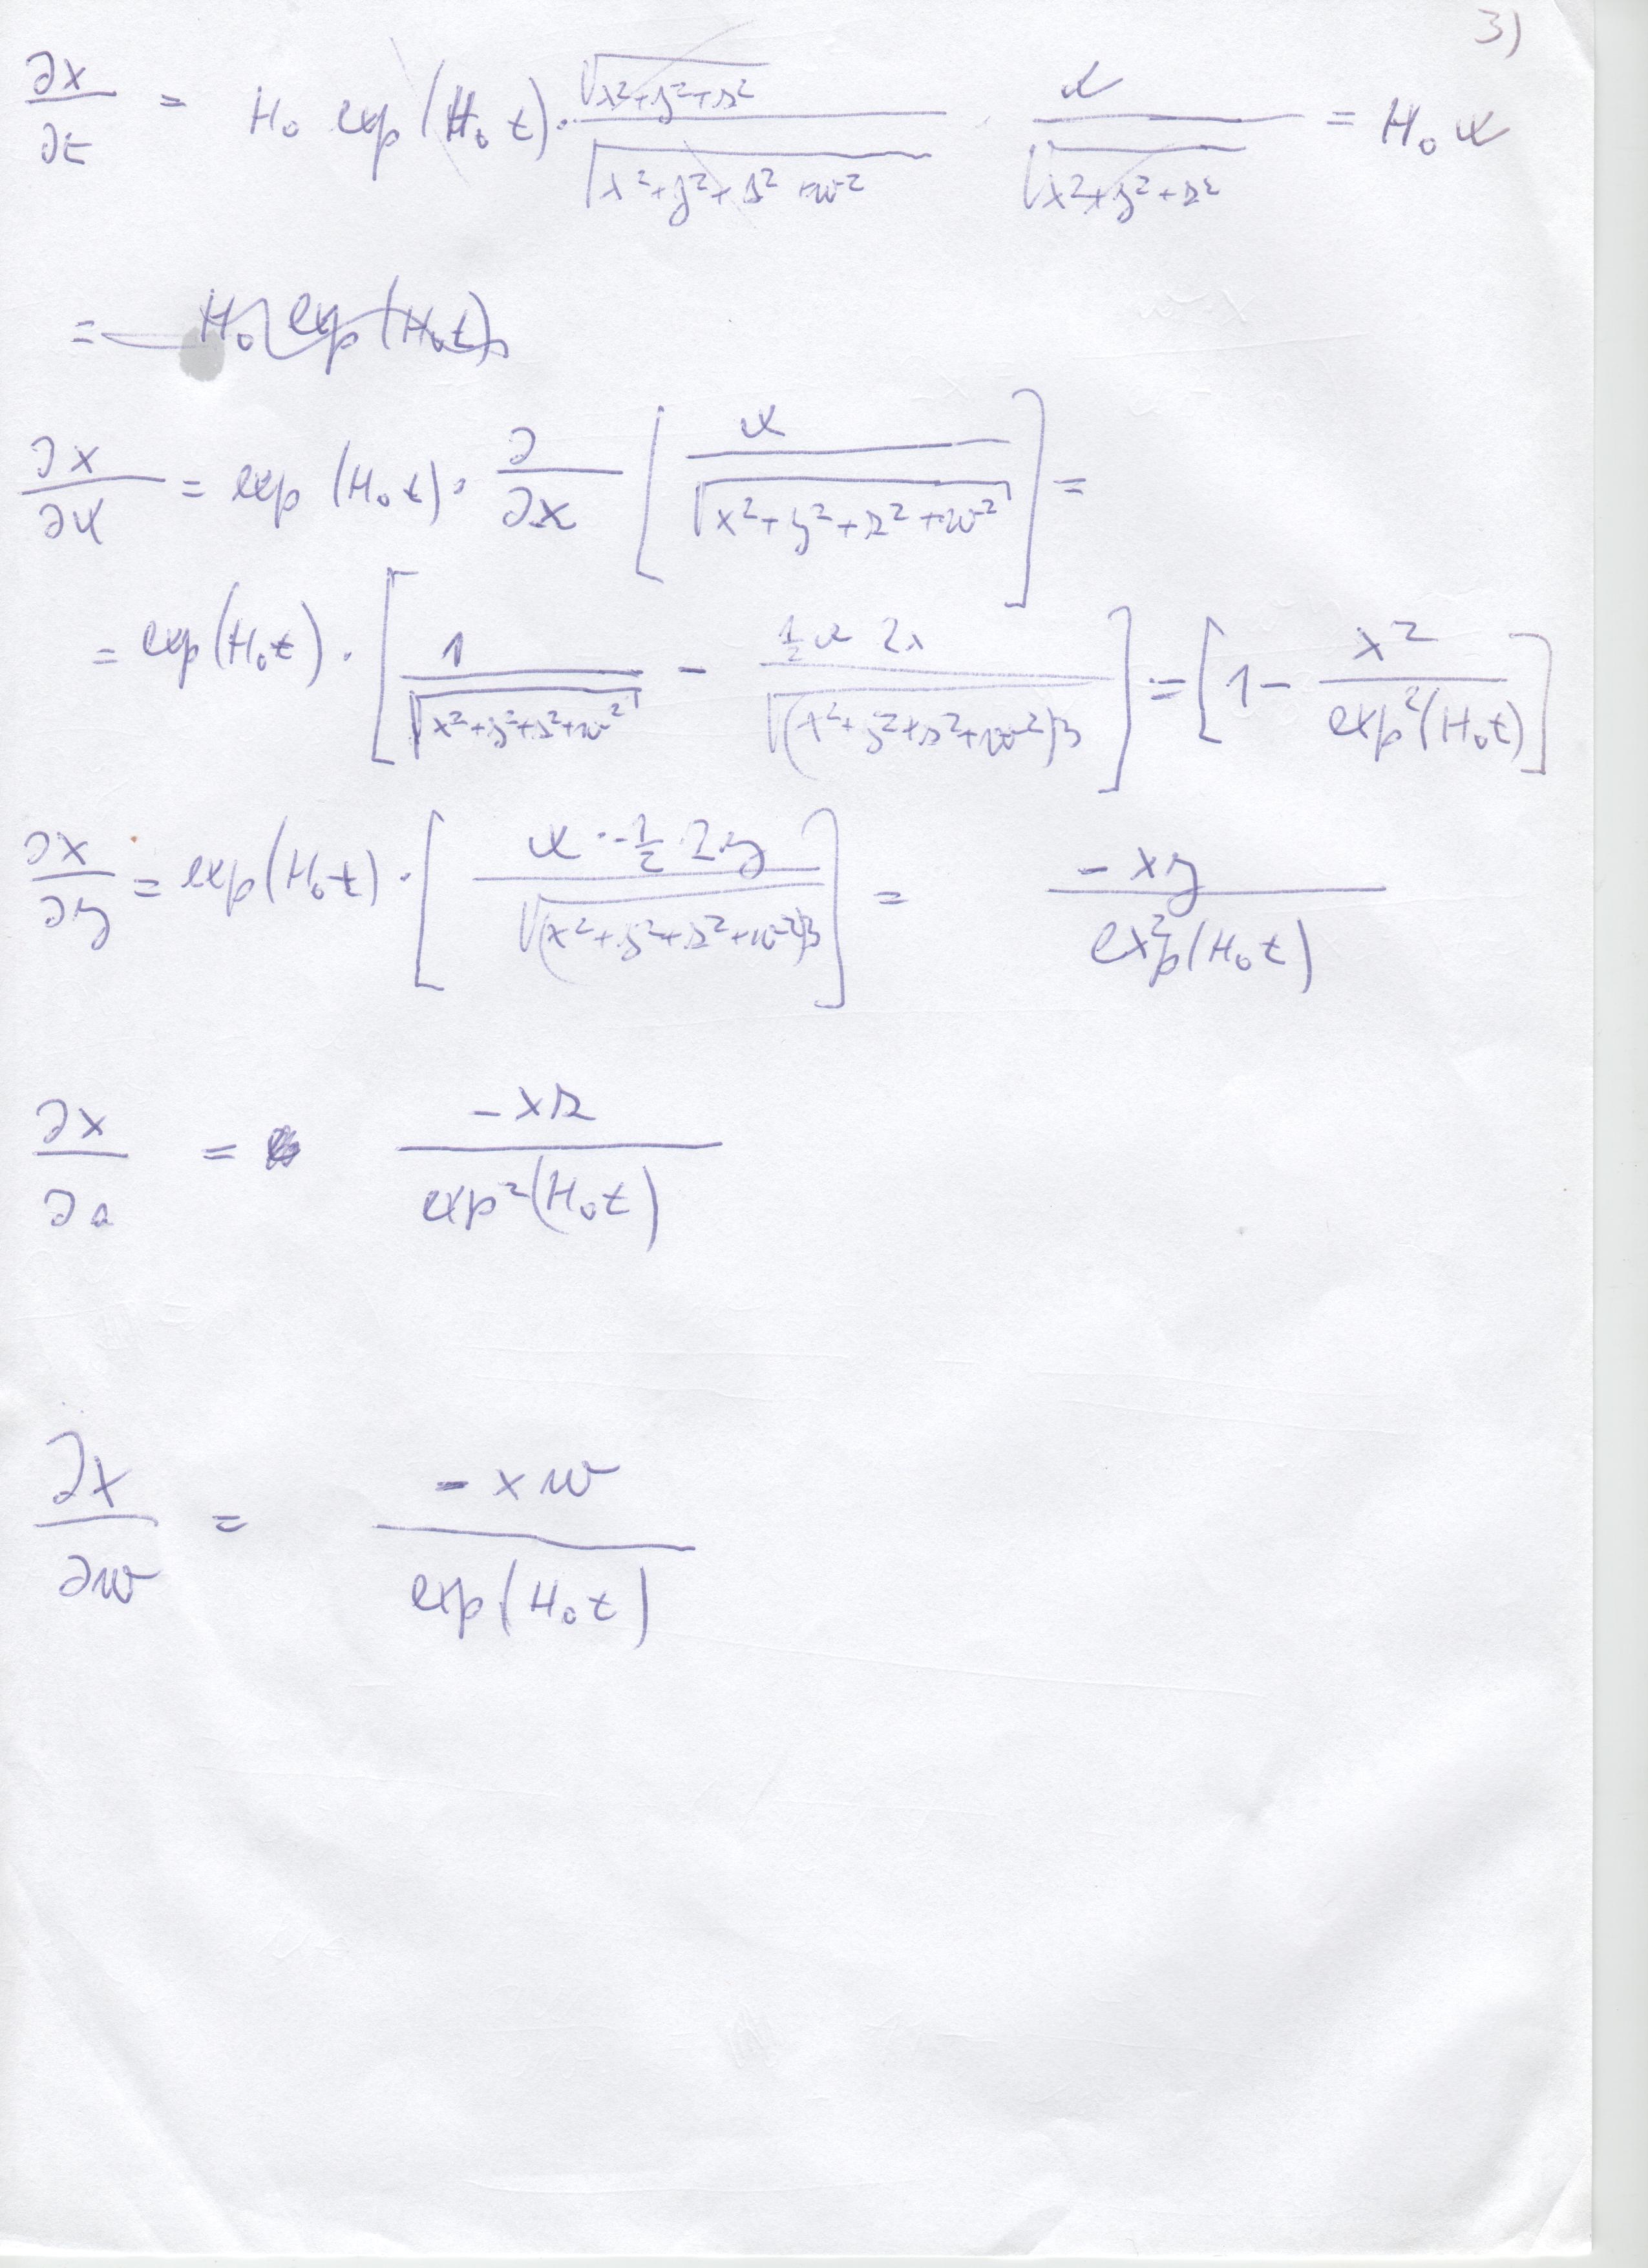 3)
∂x/∂t = H₀ exp(H₀t) · √(x²+y²+z²) / √(x²+y²+z²+w²) · x / √(x²+y²+z²) = H₀ x
= H₀ exp(H₀t)
∂x/∂x = exp(H₀t) · ∂/∂x [ x / √(x²+y²+z²+w²) ] =
= exp(H₀t) · [ 1 / √(x²+y²+z²+w²) − ½x 2x / √(x²+y²+z²+w²)³ ] = [ 1 − x² / exp²(H₀t) ]
∂x/∂y = exp(H₀t) · [ x · −½ · 2·y / √(x²+y²+z²+w²)³ ] = −xy / exp²(H₀t)
∂x/∂z = −xz / exp²(H₀t)
∂x/∂w = −xw / exp(H₀t)